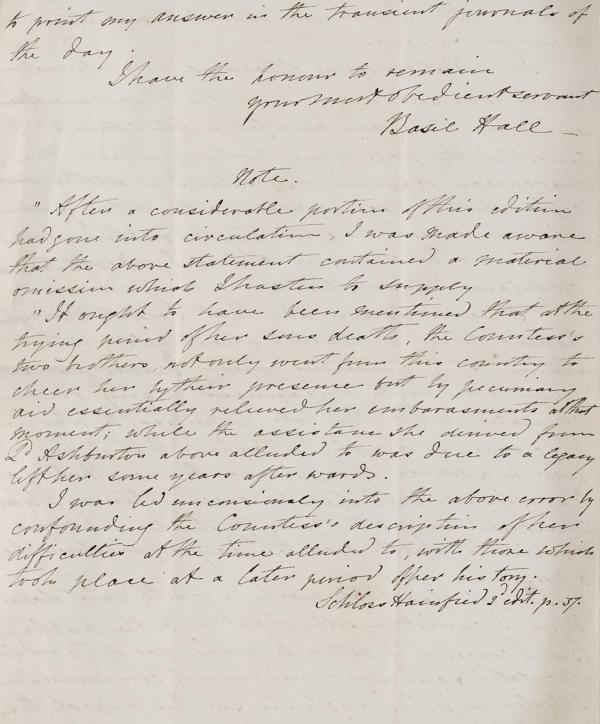 to print my answer in the transient journals of
the day.
I have the honour to remain
your most obedient servant
Basil Hall —
Note.
" After a considerable portion of this edition
had gone into circulation, I was made aware
that the above statement contained a material
omission which I hasten to supply
" It ought to have been mentioned that at the
trying period of her sons death, the Countess's
two brothers, not only went from this country to
cheer her by their presence but by pecuniary
aid essentially relieved her embarasments at that
moment; while the assistance she derived from
Ld Ashburton above alluded to was due to a legacy
left her some years after wards.
I was led unconsiously into the above error by
confounding the Countess's description of her
difficulties at the time alluded to, with those which
took place at a later period of her history.
Schloss Hainfied 2d edit. p. 37.